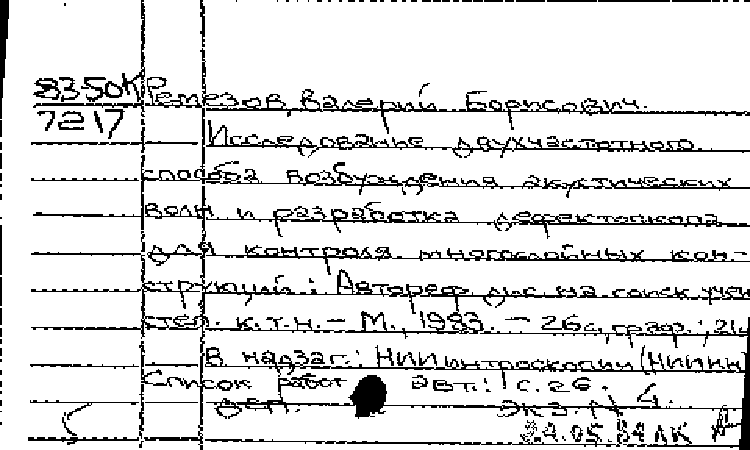 8350К Ремезов, Валерий Борисович.
7217
Исследование двухчастотного
способа возбуждения акустических
волн и разработка дефектоскопа
для контроля многослойных кон-
струкций : Автореф. дис. на соиск. учен.
степ. к.т.н. - М., 1983. - 26с., граф. ; 21
В надзаг.: НИИинтроскопии (НИИИН)
Список работ авт.: с.26.
ДСП. экз. N 4.
24.05.84 ЛК